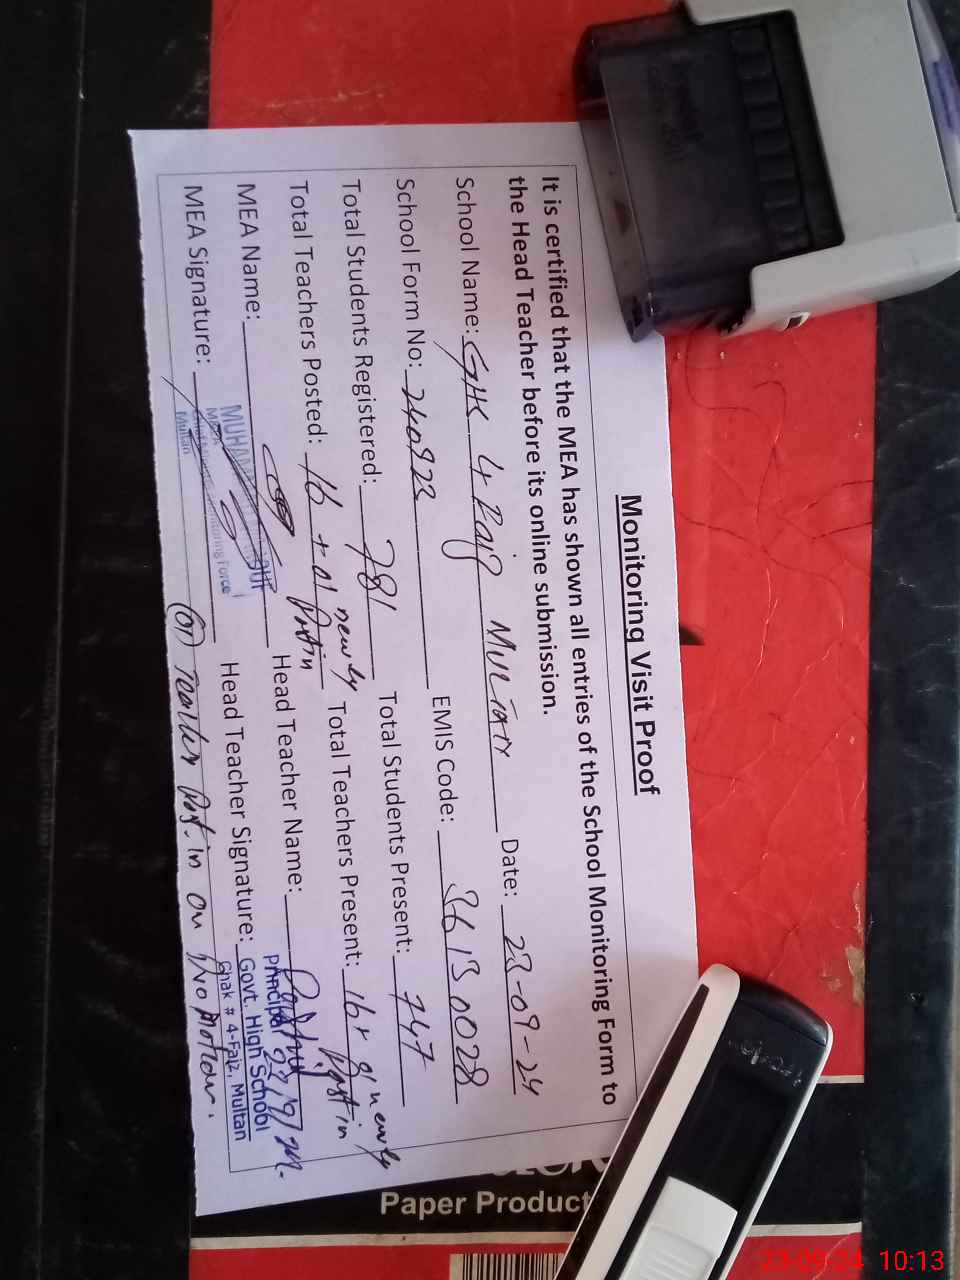 Monitoring Visit Proof
It is certified that the MEA has shown all entries of the School Monitoring Form to
the Head Teacher before its online submission.
School Name: GHS 4 Faiz Multan Date: 23-09-24
School Form No: 240923 EMIS Code: 36130028
Total Students Registered: 781 Total Students Present: 747
Total Teachers Posted: 16 + 01 newly Post in Total Teachers Present: 16+ 01 newly Post in
MEA Name: Head Teacher Name:
MEA Signature: Head Teacher Signature:
MEA
Monitoring Force
Multan
Principal
Govt. High School
Chak # 4-Faiz, Multan
(01) Teacher Post. in on Promotion.
Paper Product
23-09-24 10:13